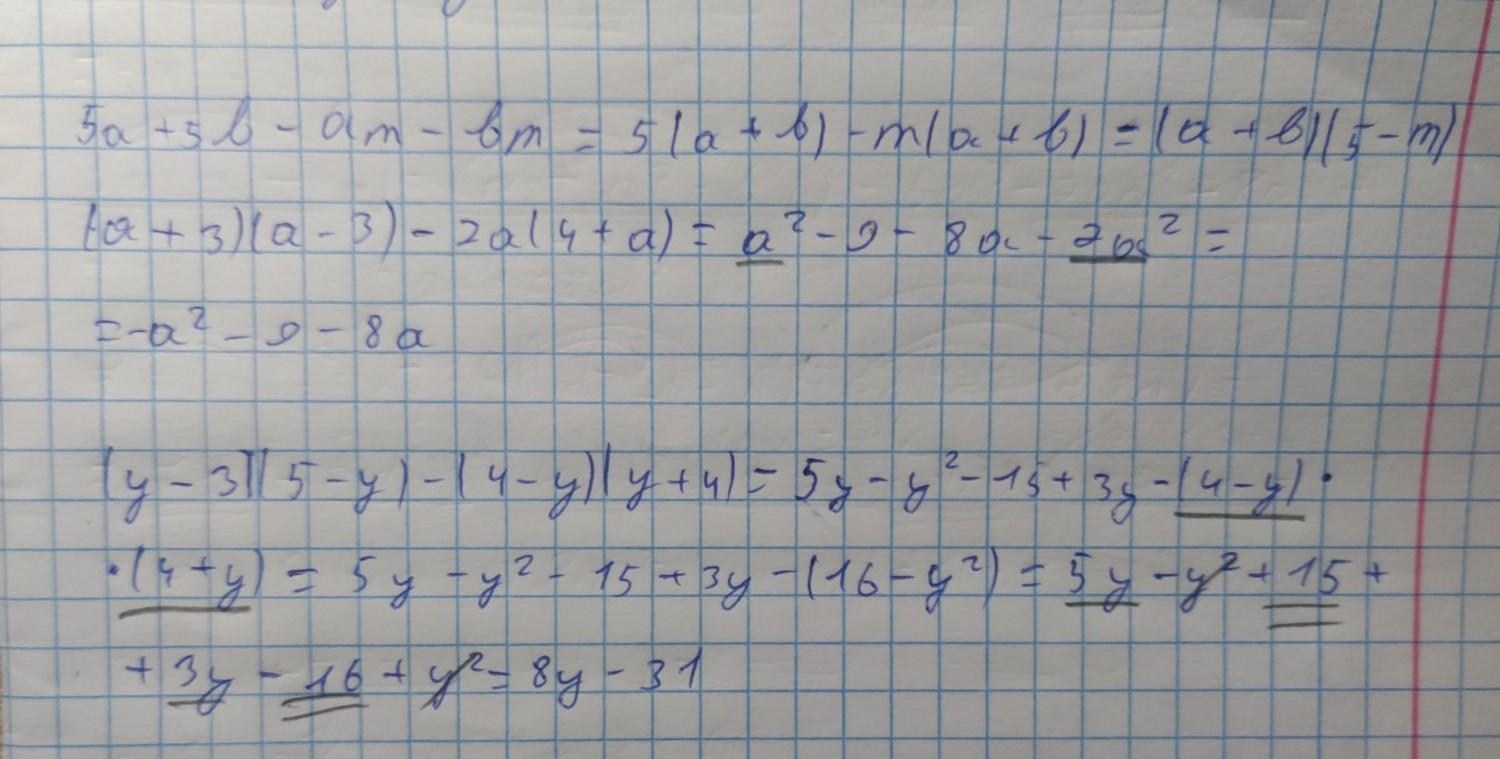 5a + 5b - am - bm = 5(a + b) - m(a + b) = (a + b)(5 - m)
(a + 3)(a - 3) - 2a(4 + a) = a² - 9 - 8a - 2a² =
= -a² - 9 - 8a
(y - 3)(5 - y) - (4 - y)(y + 4) = 5y - y² - 15 + 3y - (4 - y) ·
· (4 + y) = 5y - y² - 15 + 3y - (16 - y²) = 5y - y² + 15 +
+ 3y - 16 + y² = 8y - 31